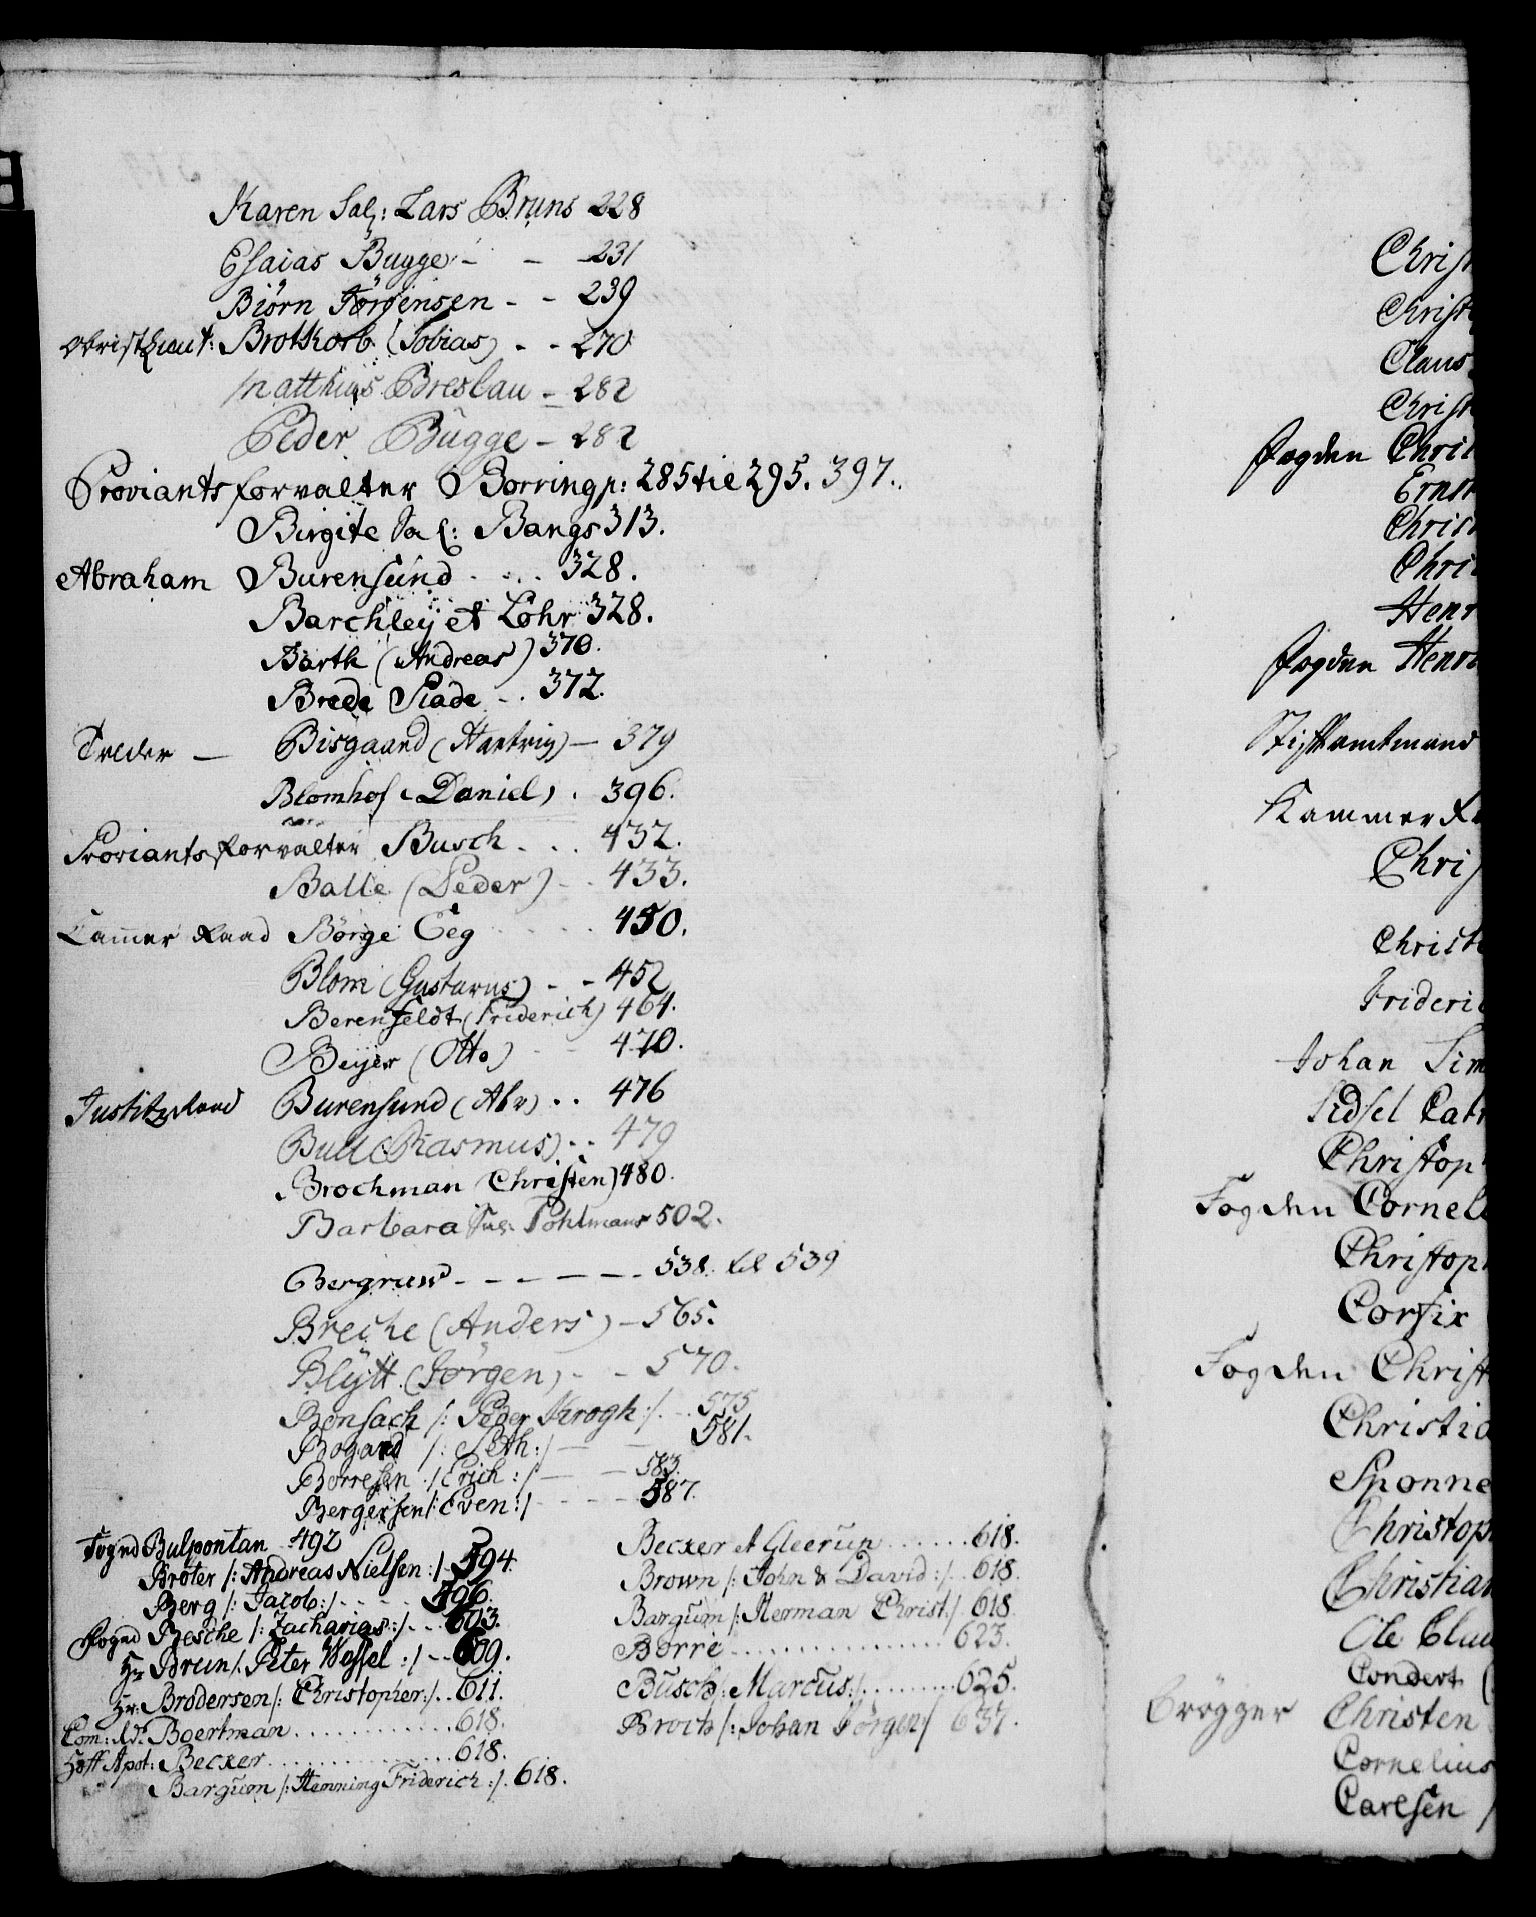 Karen Sal: Lars Bruns 228
Esaias Bugge - - 231
Biörn Jörgensen - - 239
Obristlieut: Brotkorb (Tobias) - - 270
Matthias Breslau - 282
Peder Bugge - 282
Proviantsforvalter Borring p: 285 til 295. 397.
Birgite Sal: Bangs 313.
Abraham Burensund . . . . 328.
Barchley et Lohr 328.
Barth (Andreas) 370.
Brede Slade - . 372.
Treder — Bisgaard (Hartvig) — 379
Blomhof (Daniel) . 396.
Proviantsforvalter Busch . . . 432.
Balle (Peder) - . 433.
Cammer Raad Börge Eeg . . . . 450.
Blom (Gustavus) - - 452
Berenfeldt (Friderich) 464.
Beyer (Otto) - - 470.
Justitzraad Burensund (Abr) . . 476
Bull (Rasmus) . . 479
Brochman Christen) 480.
Barbara Sal: Pohlmans 502.
Bergrun - - - - - - 538. til 539
Breche (Anders) - 565.
Blÿtt (Jörgen) - - 570.
Bonsach /: Peder Krogh :/ . . 575
Bogard /: Seth :/ — — 581.
Borresen /: Erich :/ — — 583.
Bergersen /: Even :/ - - - - 587.
Fogd Bulpontan . . 492
Broter /: Andreas Nielsen :/ . 594.
Berg /: Jacob :/ - - - - 596.
Fogd Besche /: Zacharias :/ . . . 603.
Hr Brun /: Peter Wessel :/ - - 609.
Hr: Brodersen /: Christopher :/ . . 611.
Com: Rd: Boertman . . . . . . . . . . . . 618.
Hoff Apot: Becker . . . . . . . . . . . . . 618.
Bargum /: Henning Friderich :/ . 618.
Becker et Gleerup . . . . . . 618.
Brown /: John & David :/ . . 618.
Bargum /: Herman Christ :/ 618.
Borre . . . . . . . . . . . . . . . 623.
Busch /: Marcus :/ . . . . . . . . 625.
Broch /: Johan Jörgen / 637.
Christ
Claus
Christ
Fogden Chris
Ernst
Chris
Henr
Fogden Henri
Stiftamtmand
Kammer Ra
Chris
Christ
Frideric
Johan Sim
Sidsel Catr
Christoph
Fogden Corneli
Christoph
Corfix
Fogden Christ
Christia
Christoph
Christian
Ole Clau
Condert (
Brögger Christen
Cornelius
Carlsen /